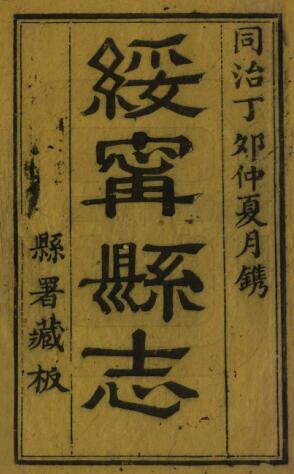 同治丁卯仲夏月鐫
綏甯縣志
縣署藏板